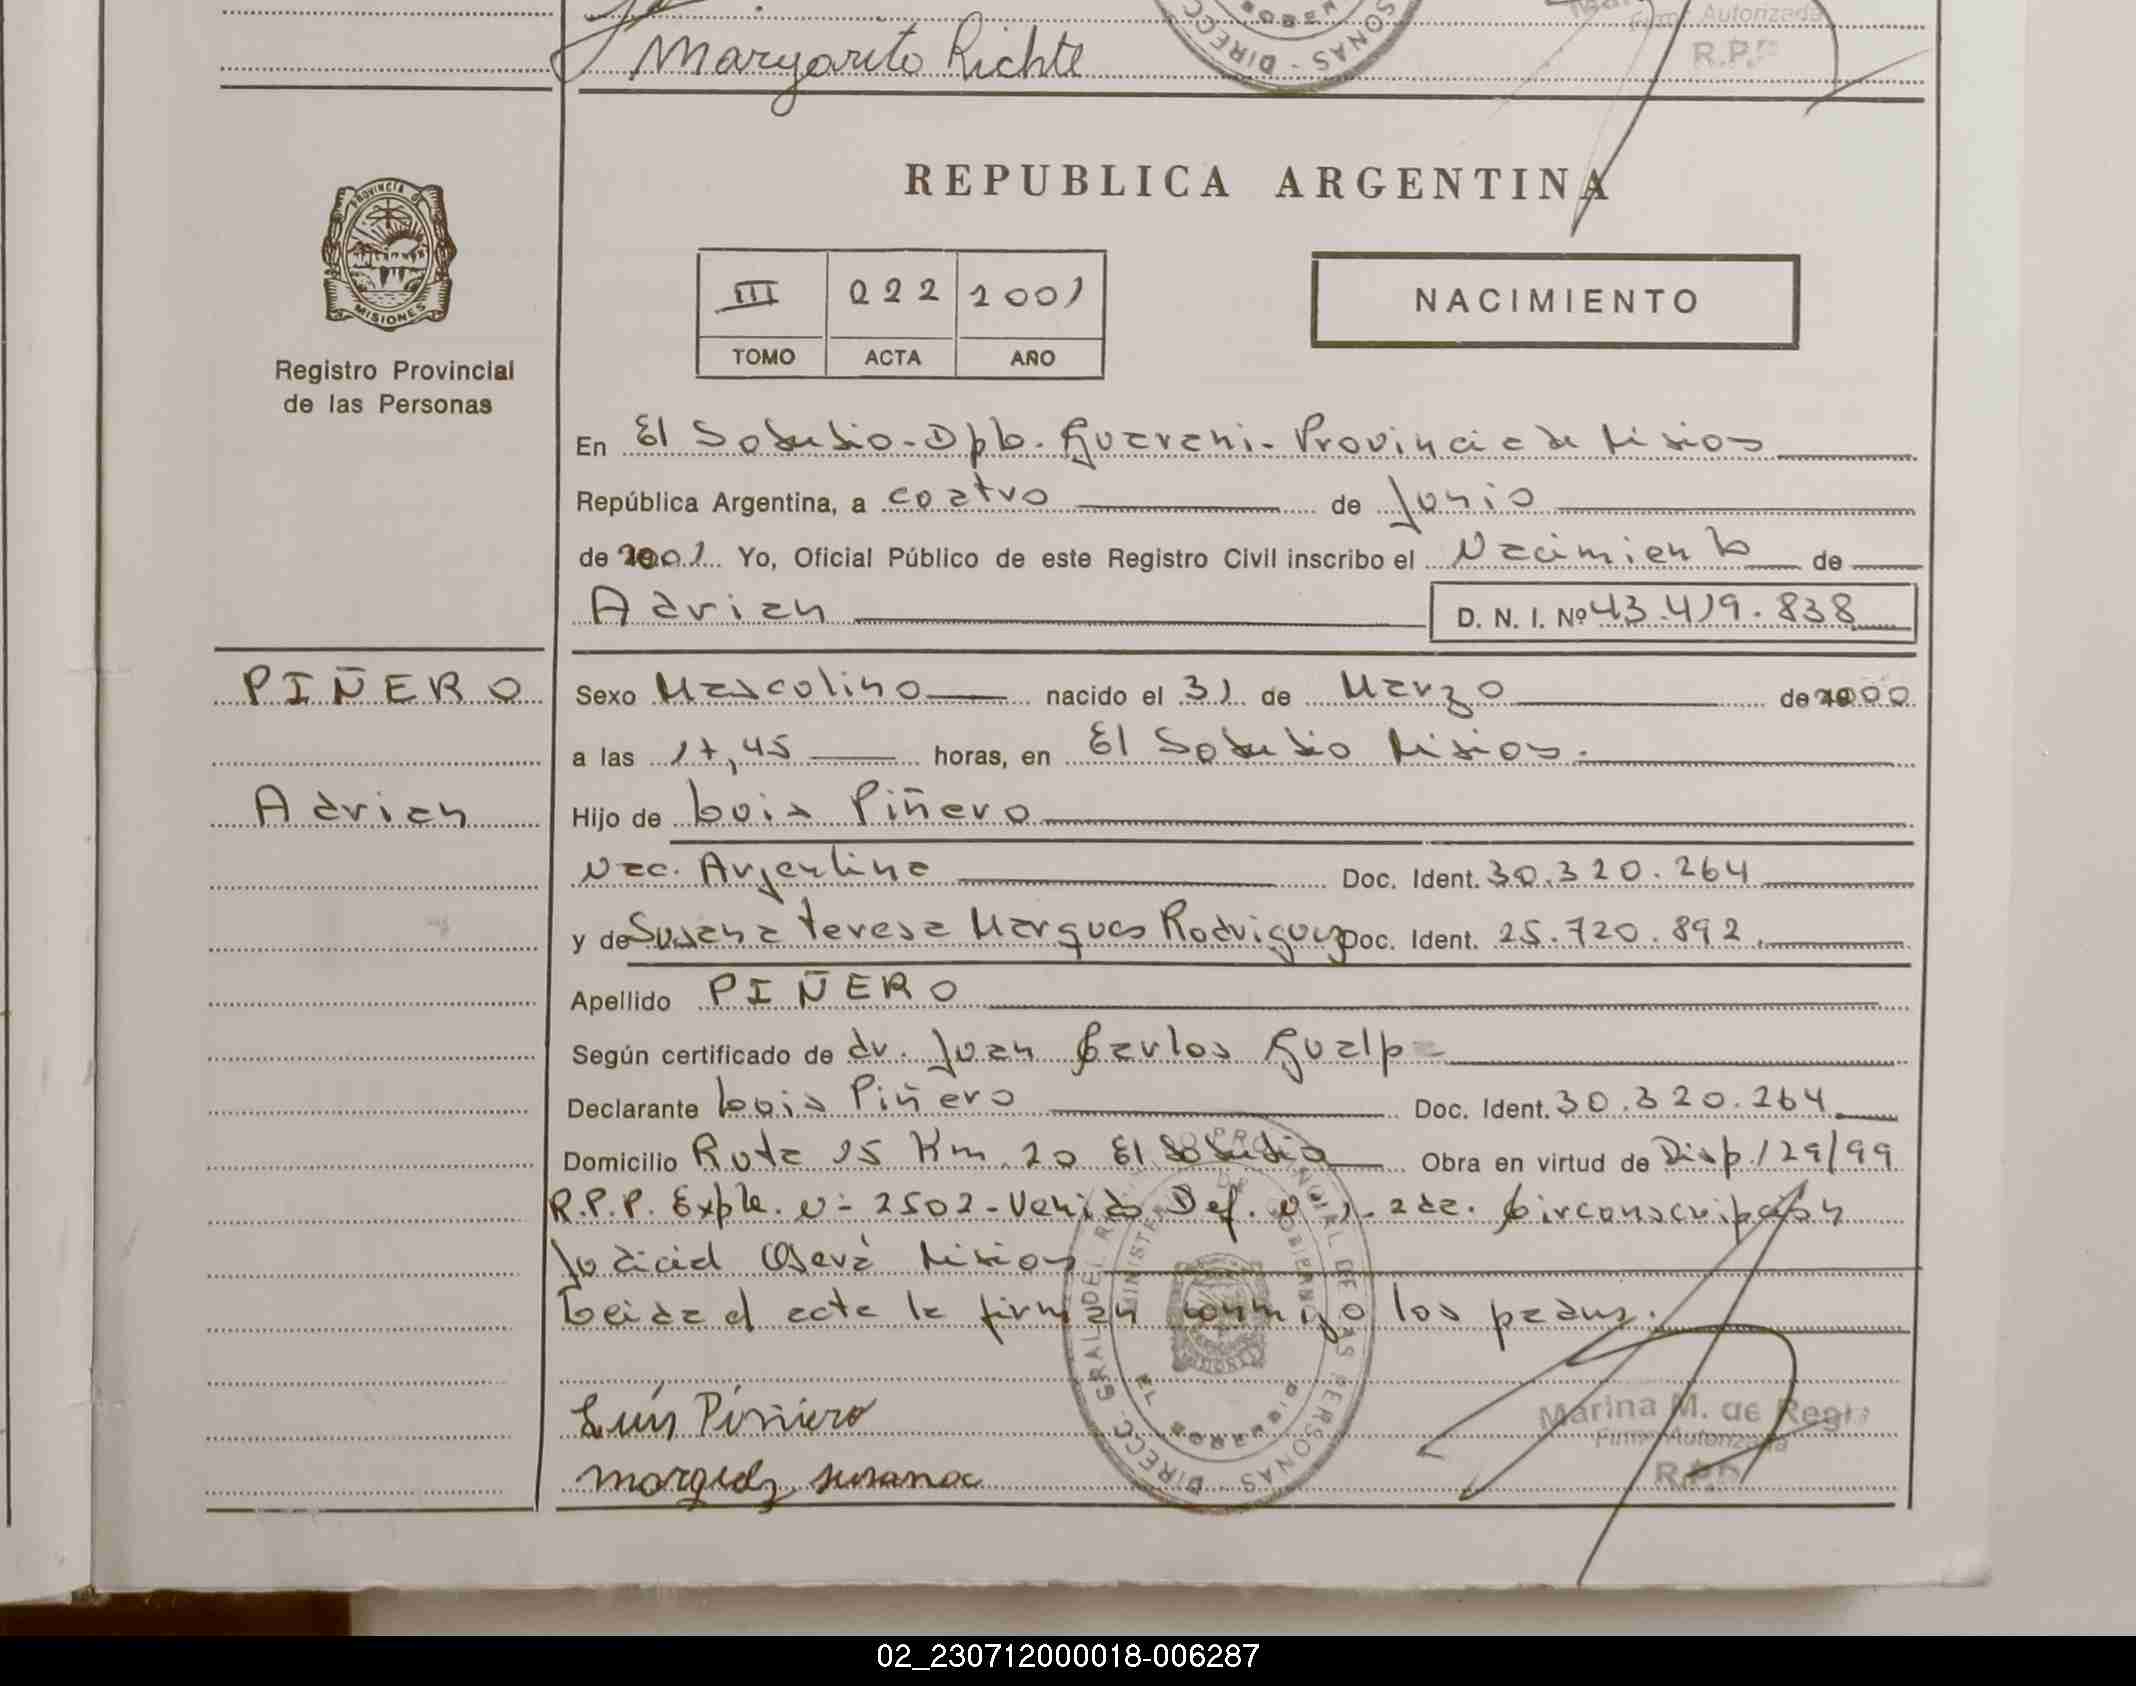 Margarito Richte
Firma Autorizada
R.P.P
DIRECC SONAS
REPUBLICA ARGENTINA
PROVINCIA DE
MISIONES
Registro Provincial
de las Personas
III 022 2001
TOMO ACTA AÑO
NACIMIENTO
En El Soberbio - Dpto. Guarani - Provincia de Misios
República Argentina, a coatro de Junio
de 2001 Yo, Oficial Público de este Registro Civil inscribo el Nacimiento de
Adrian D. N. I. Nº 43.419.838
PIÑERO
Sexo Masculino nacido el 31 de Marzo de 2000
a las 17,45 horas, en El Soberbio Misios.
Adrian
Hijo de Luis Piñero
Nac. Argentina Doc. Ident. 30.320.264
y de Susana Teresa Marques Rodriguez Doc. Ident. 25.720.892
Apellido PIÑERO
Según certificado de dr. Juan Carlos Gualpa
Declarante Luis Piñero Doc. Ident. 30.320.264
Domicilio Ruta 15 Km. 20 El Soberbio Obra en virtud de Disp. 129/99
R.P.P. Expte. Nº 2502 - Venido Def. Nº 1 - 2da. Circonscripción
Judicial Oberá Misios
Leida el acta la firman conmigo los padres.
Luis Piñiero
marquez susana
DIRECC. GRAL. DEL REG. PROVINCIAL DE LAS PERSONAS
MINISTERIO DE GOBIERNO
EL SOBERBIO
Marina M. de Regis
Firma Autorizada
R.P.P
02_230712000018-006287